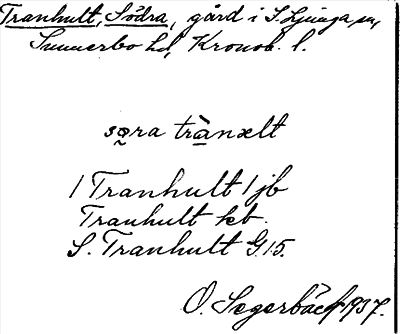 Tranhult, Södra, gård i S. Ljunga sn,
Sunnerbo hd, Kronob. l.
sǫra trànælt
1 Tranhult 1 jb
Tranhult kb.
S. Tranhult G.15.
O. Segerbäck 1937.